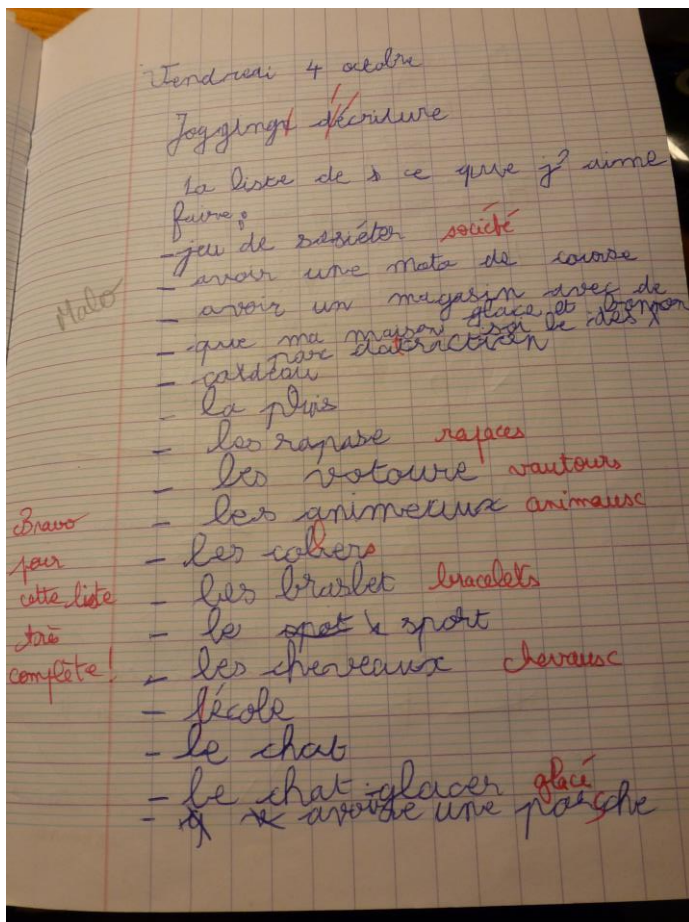 Vendredi 4 octobre
Jogging d'écriture
La liste de ce que j'aime
faire :
- jeu de sosiéter société
- avoir une moto de course
- avoir un magasin avec de
glace et bonpon
- que ma maison soi le des
parc datraction
- cardeau
- la pluis
- les rapase rapaces
- les votoure vautours
- les animeaux animaux
- les colliers
- les braslet bracelets
- le spot sport
- les cheveaux chevaux
- l'école
- le chat
- le chat glacer glacé
- avoire une porsche
Malo
Bravo
pour
cette liste
très
complète !